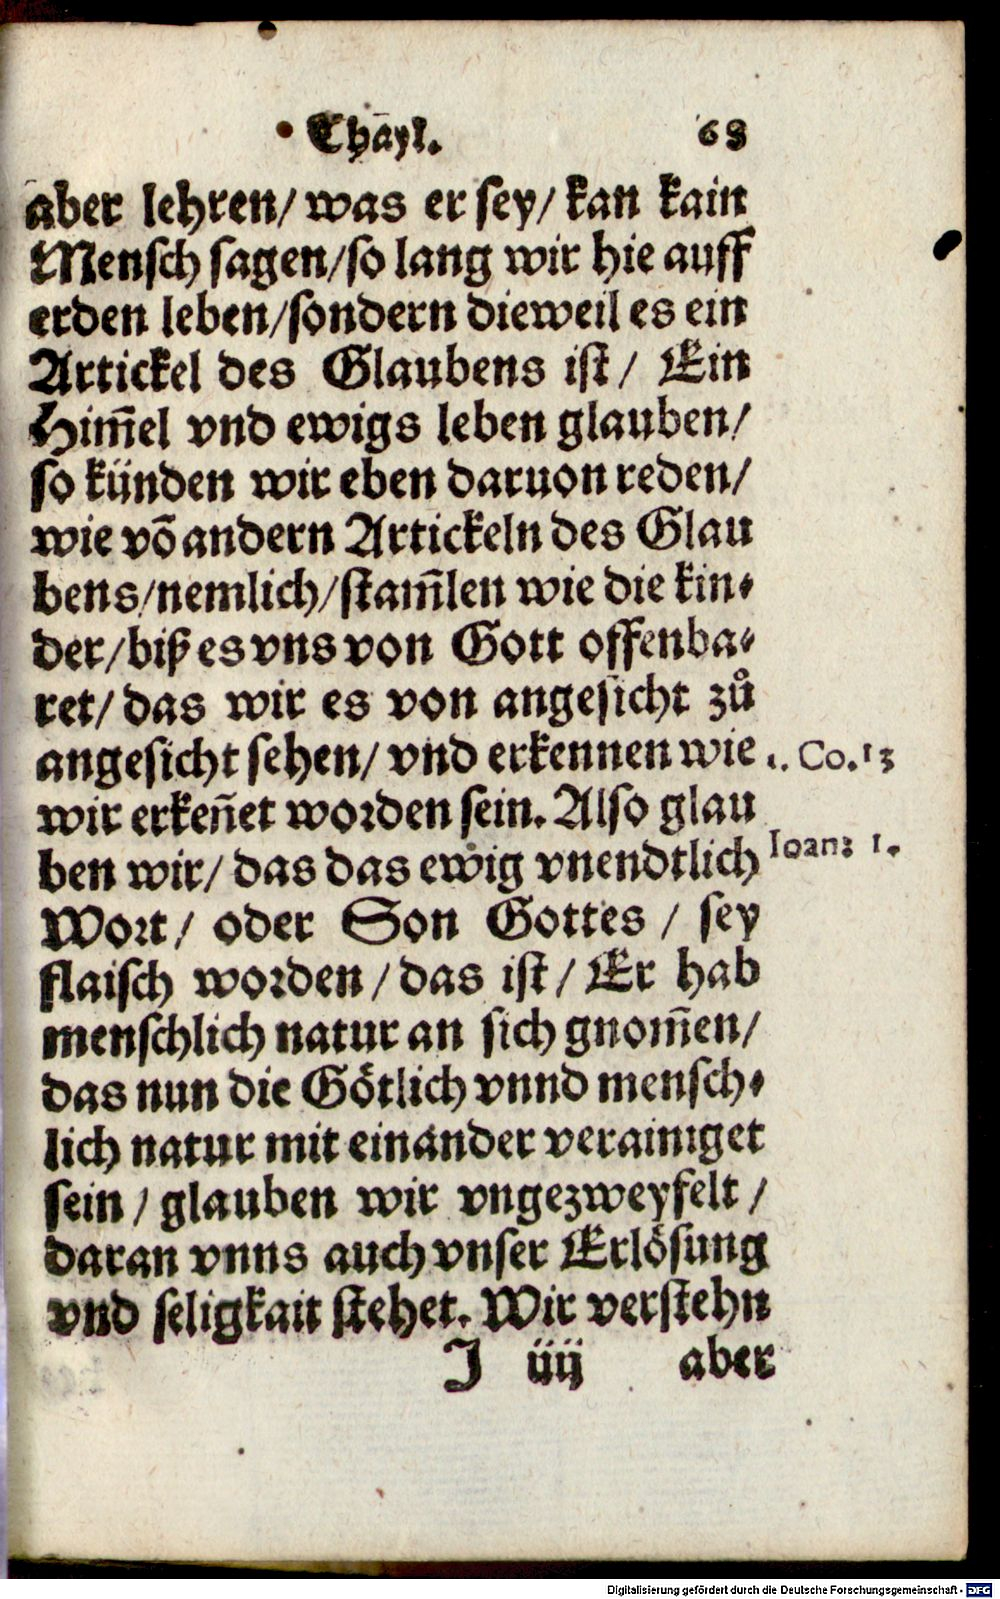 Thayl. 68
aber lehren/ was er sey/ kan kain
Mensch sagen/so lang wir hie auff
erden leben/sondern dieweil es ein
Artickel des Glaubens ist/ Ein
Him̃el vnd ewigs leben glauben/
so künden wir eben daruon reden/
wie võ andern Artickeln des Glau
bens/nemlich/stam̃len wie die kin⸗
der/biß es vns von Gott offenba⸗
ret/ das wir es von angesicht zů
angesicht sehen/ vnd erkennen wie 1. Co. 13
wir erkeñet worden sein. Also glau
ben wir/ das das ewig vnendtlich Ioan: 1.
Wort/ oder Son Gottes / sey
flaisch worden/das ist/ Er hab
menschlich natur an sich gnom̃en/
das nun die Götlich vnnd mensch⸗
lich natur mit einander verainiget
sein/ glauben wir vngezweyfelt/
daran vnns auch vnser Erlösung
vnd seligkait stehet. Wir verstehn
J iiij aber
Digitalisierung gefördert durch die Deutsche Forschungsgemeinschaft - DFG